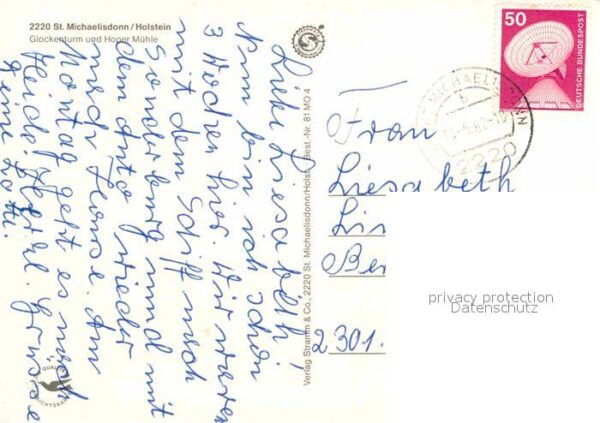 2220 St. Michaelisdonn/Holstein
Glockenturm und Hoper Mühle
Liebe Liesabeth!
Nun bin ich schon
3 Wochen hier. Wir waren
mit dem Schiff nach
Sonderburg und mit
dem Auto wieder
nach Hause. Am
Montag geht es nach
Heide. Herzl. Grüsse
Deine
Verlag Stramm & Co., 2220 St. Michaelisdonn/Holst. Best.-Nr. 81 MO 4
50
DEUTSCHE BUNDESPOST
MICHAELISDONN
b
82-10
2220
Frau
Liesabeth
Lin
Ber
2301
privacy protection
Datenschutz